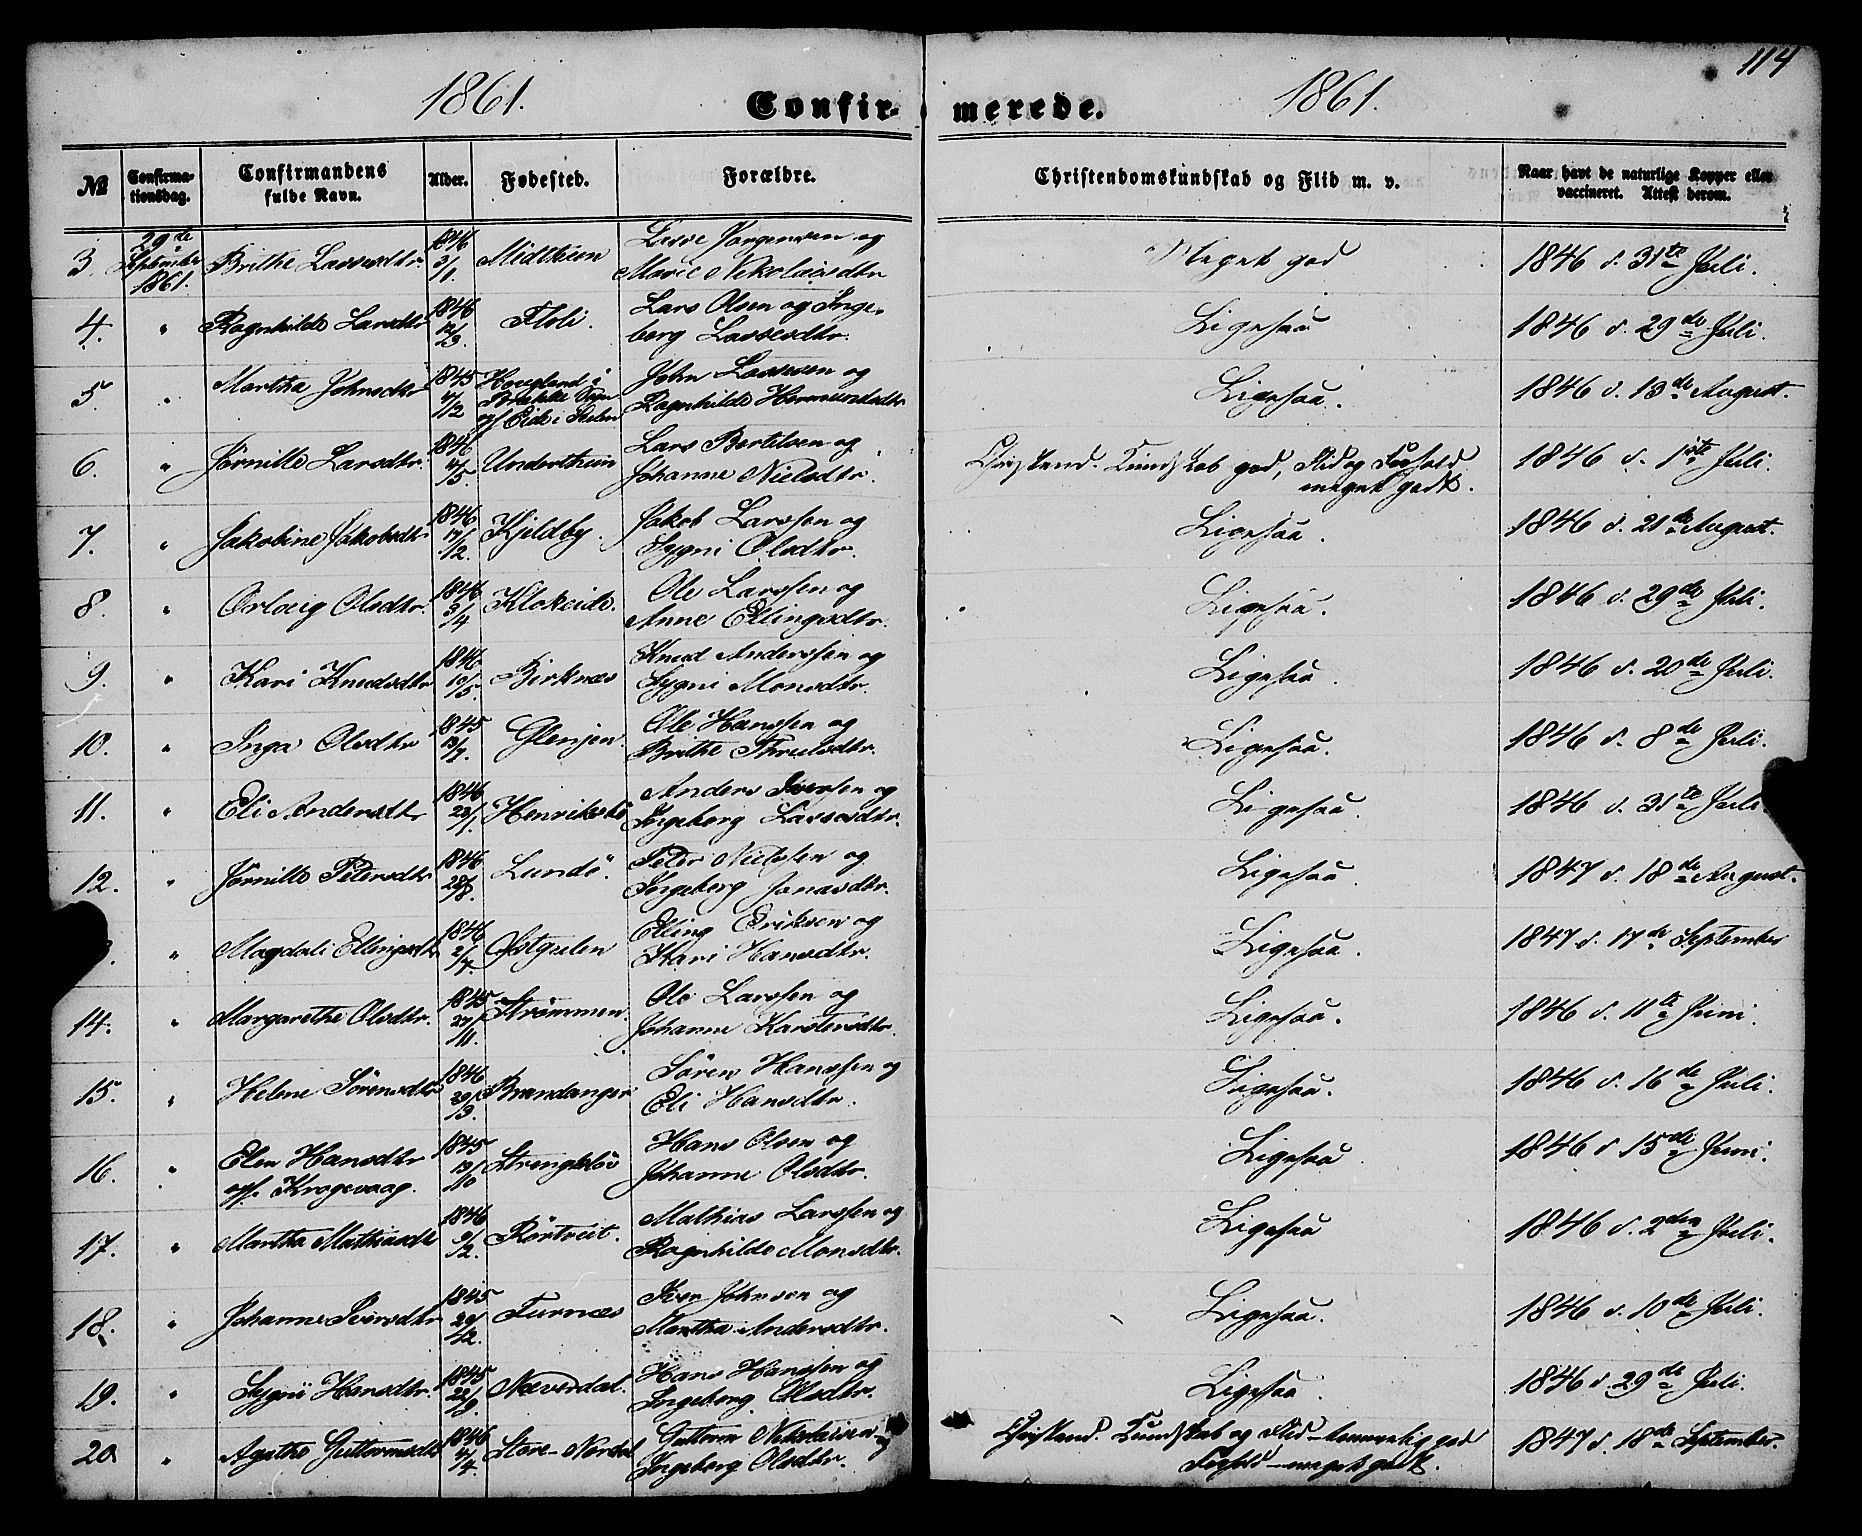 114
1861. Confirmerede. 1861.
№ Confirmationsdag. Confirmandens fulde Navn. Alder. Fødested. Forældre. Christendomskundskab og Flid m. v. Naar havt de naturlige Kopper eller vaccineret. Attest derom.
3. 29de September 1861. Brithe Lassesdtr. 1846 3/1. Midthun Lasse Jørgensen og Marie Nikolaisdtr Meget god 1846 d. 31te Juli.
4. " Ragnhilde Larsdtr 1846 12/3. Floli. Lars Olsen og Ingeberg Lassesdtr. Ligesaa 1846 d. 29de Juli.
5. " Martha Johnsdtr 1845 4/12 Hougland i Brække Sogn opf. Eide i John Lassesen og Ragnhilde Hermundsdtr Ligesaa. 1846 d. 13de August.
6. " Jørnille Larsdtr. 1846 4/5. Underthun Lars Bertilsen og Johanne Nielsdtr. Christend. Kundskab god, Flid og Forhold meget godt. 1846 d. 1ste Juli.
7. " Jakobine Jakobsdtr 1846 17/12. Kjeldby. Jakob Larssen og Sygni Olsdtr. Ligesaa. 1846 d. 21de August.
8. " Orlaug Olsdtr. 1846 3/4 Klokeide. Ole Larssen og Anne Ellingsdtr. Ligesaa. 1846 d. 29de Juli.
9. " Kari Knudsdtr 1846 10/5. Birknæs Knud Anderssen og Sygni Monsdtr. Ligesaa. 1846 d. 20de Juli.
10. " Inga Olsdtr 1845 13/7. Glenjen. Ole Hanssen og Brithe Thruelsdtr. Ligesaa. 1846 d. 8de Juli.
11. " Eli Andersdtr 1846 23/1. Henriksbø Anders Iversen og Ingeborg Lassesdtr. Ligesaa. 1846 d. 31te Juli
12. " Jørnille Petersdtr 1846 28/8. Lundø Peter Nielssen og Ingeborg Jonasdtr. Ligesaa. 1847 d. 18de August.
" Magdali Ellingsdtr 1846 2/7. Østgulen Elling Eriksen og Kari Hansdtr. Ligesaa. 1847 d. 17de September
14. " Margarethe Olsdtr. 1845 27/11. Strømmen. Ole Larssen og Johanne Karstensdtr. Ligesaa. 1846 d. 11te Juni.
15. " Helene Sørensdtr 1846 29/3. Brandanger Søren Hanssen og Eli Hansdtr. Ligesaa. 1846 d. 16de Juli.
16. " Elen Hansdtr opf. Krogevaag. 1845 13/10 Strengebø Hans Olsen og Johanne Olsdtr. Ligesaa 1846 d 15de Juni.
17. " Martha Mathiasdtr 1846 9/2. Rørtveit. Mathias Larssen og Ragnhilde Monsdtr. Ligesaa 1846 d. 2den Juli.
18. " Johanne Iversdtr 1845 29/12. Furnæs Iver Johnsen og Martha Andersdtr. Ligesaa. 1846 d. 10de Juli.
19. " Sygni Hansdtr. 1845 22/9. Næverdal. Hans Hanssen og Ingeborg Olsdtr. Ligesaa. 1846 d 29de Juli.
20 " Agathe Guttormsdtr 1846 4/4. Store-Nordal Guttorm Nikolaisen og Ingeborg Olsdtr. Christend. Kundskab og Flid - temmelig god Forhold - meget godt. 1847 d. 18de September.